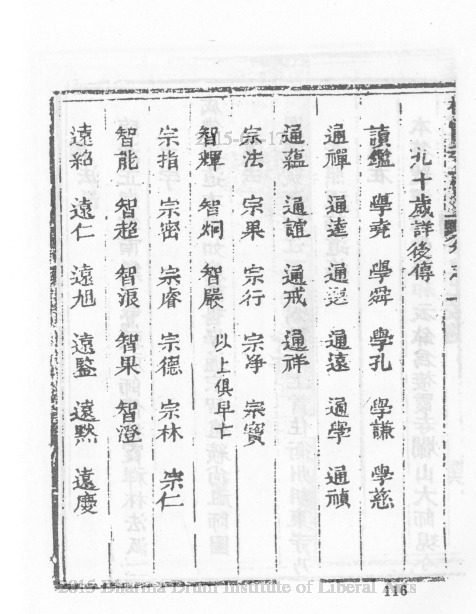 九十歲詳後傳
讀鑑 學堯 學舜 學孔 學謙 學慈
通禪 通達 通選 通遠 通學 通禎
通蘊 通誼 通戒 通祥
宗法 宗果 宗行 宗淨 宗寶
智輝 智炯 智嚴 以上俱早亡
宗指 宗密 宗睿 宗德 宗林 宗仁
智能 智超 智浪 智果 智澄
遠紹 遠仁 遠旭 遠監 遠默 遠慶
116
2015 Dharma Drum Institute of Liberal Arts